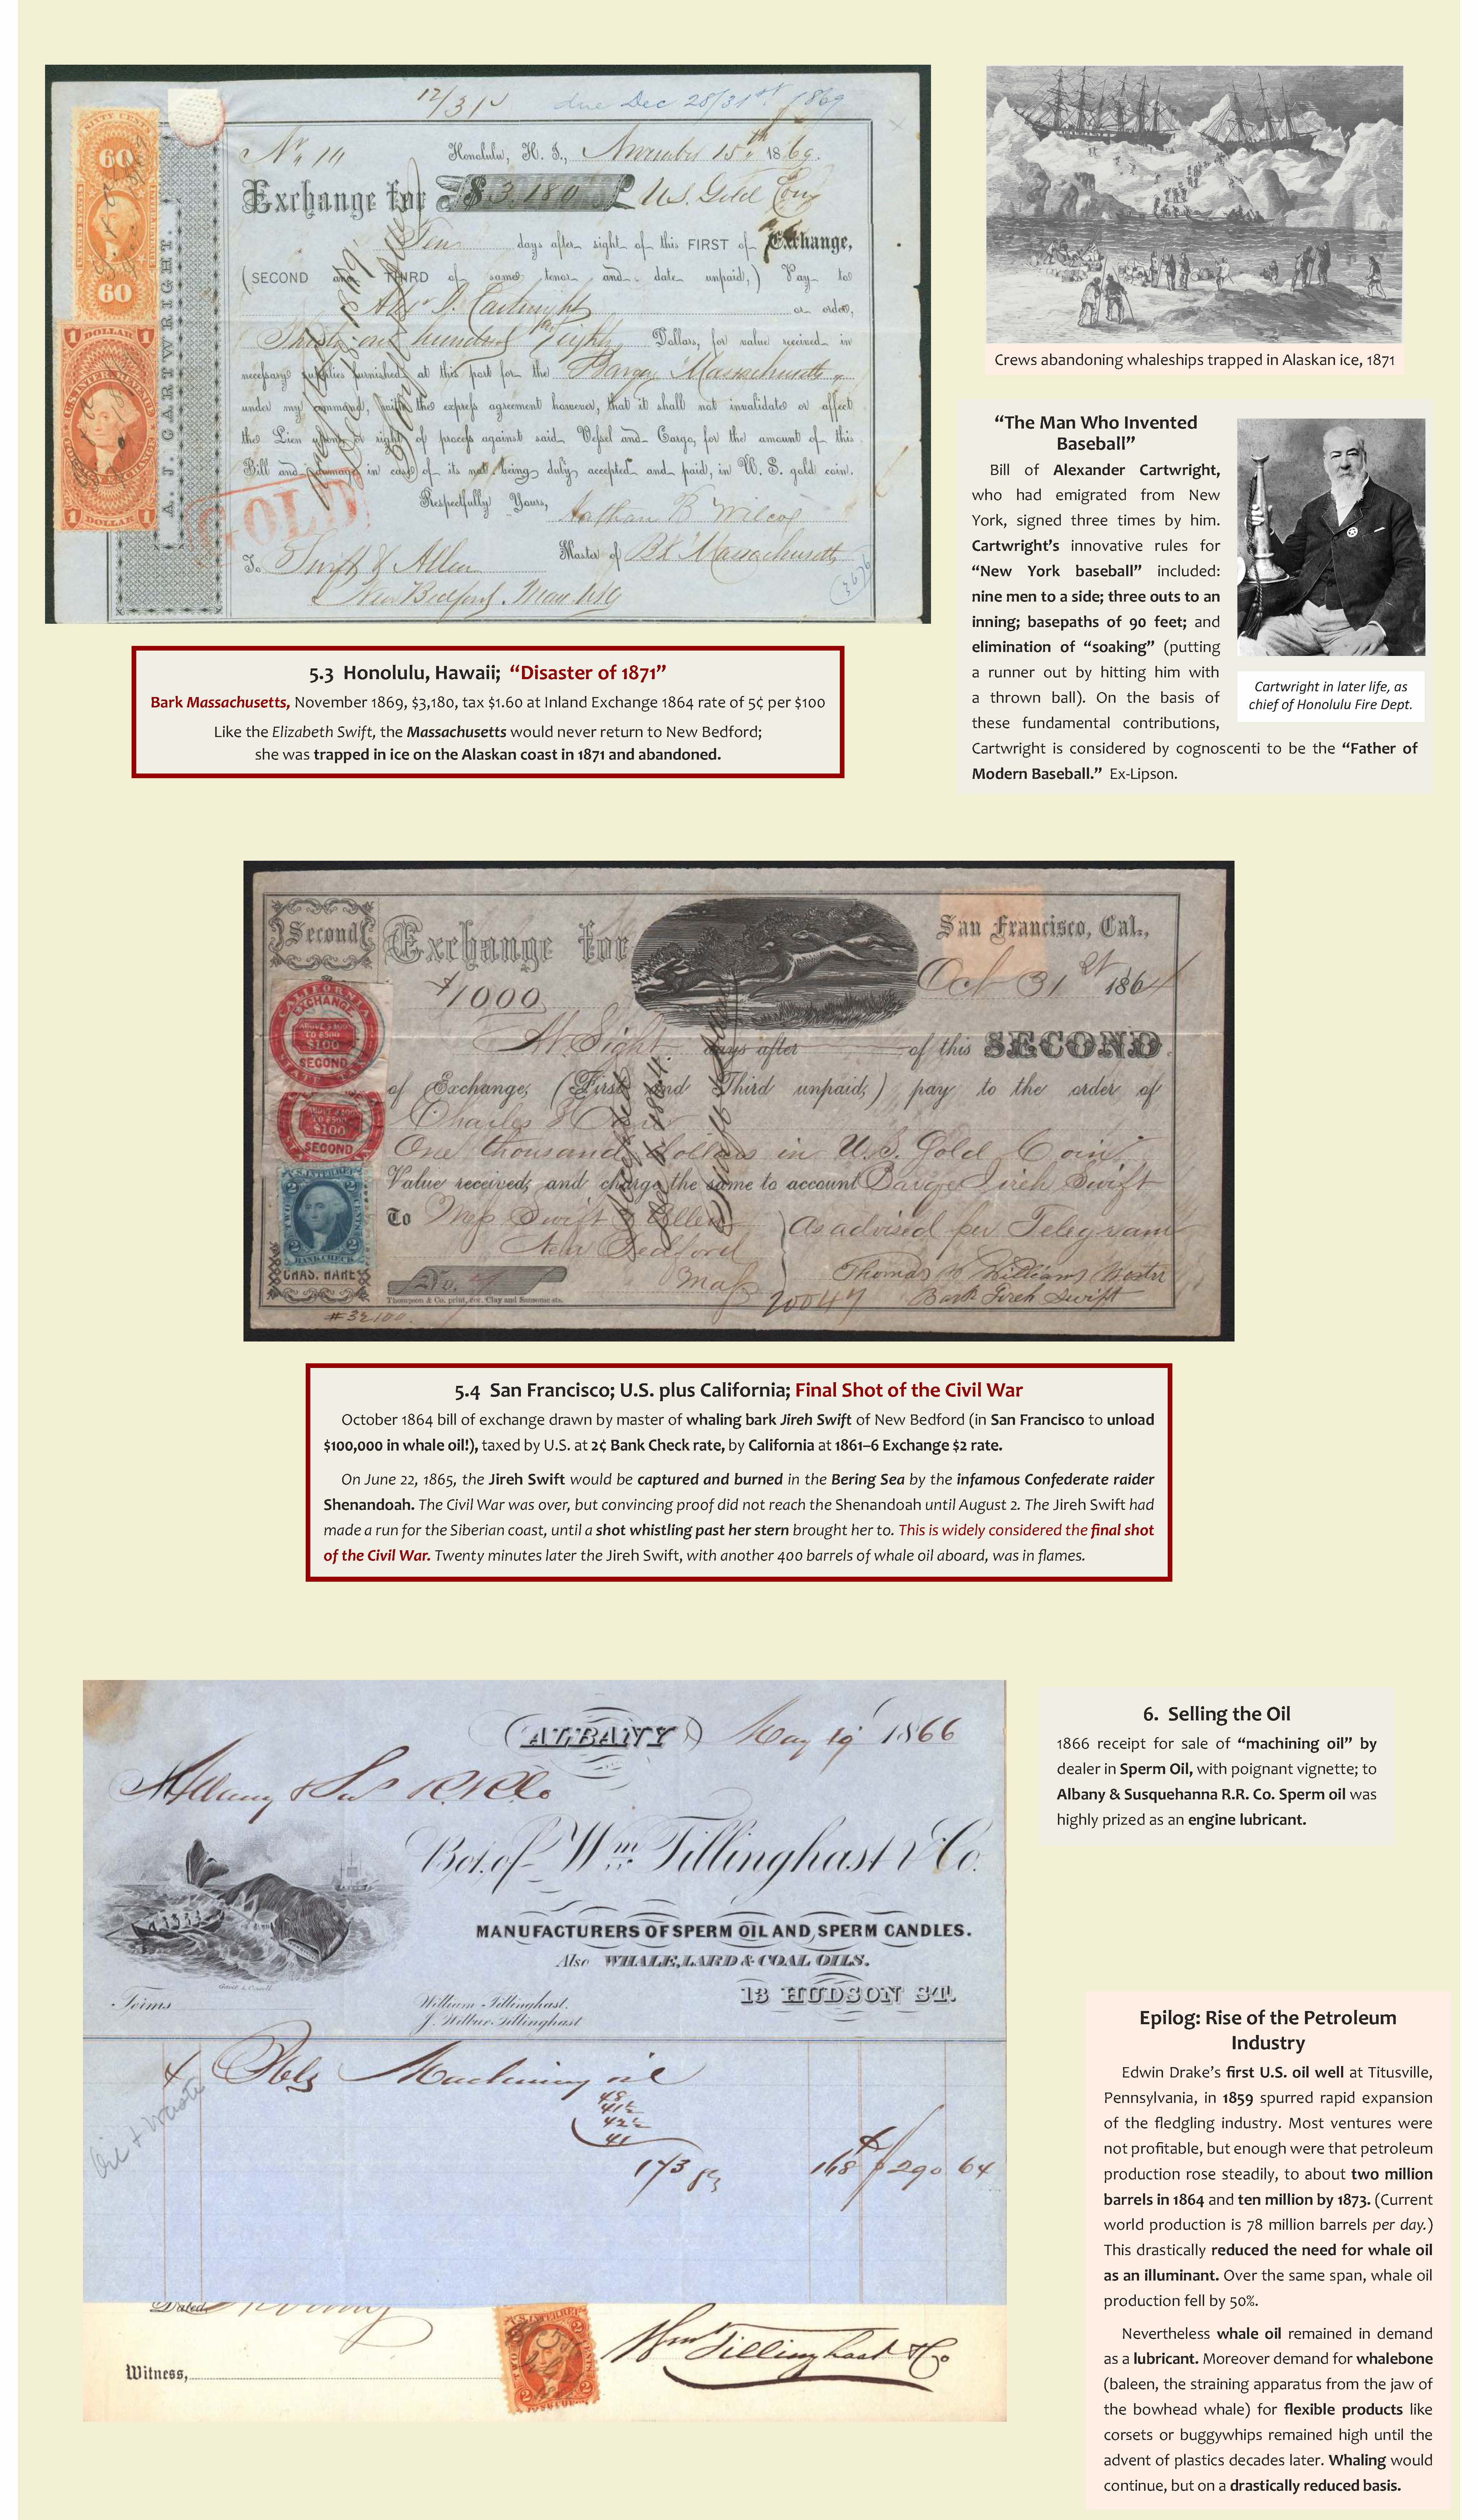 12/31
due Dec 28/31st 1869
SIXTY CENTS
60
60
No. 14 Honolulu, H. I., November 15th 1869.
Exchange for $3.180 U.S. Gold Coin
Ten days after sight of this FIRST of Exchange,
(SECOND and THIRD of same tenor and date unpaid,) Pay to
Alex J. Cartwright or order,
Thirty one hundred & Eighty Dollars, for value received in
necessary supplies furnished at this port for the Barque Massachusetts
under my command, with the express agreement however, that it shall not invalidate or affect
the Lien upon or right of process against said Vessel and Cargo, for the amount of this
Bill and damage in case of its not being duly accepted and paid, in U. S. gold coin.
Respectfully Yours,
Nathan B Wilcox
To Swift & Allen Master of Bk Massachusetts
New Bedford, Mass
A. J. CARTWRIGHT.
1 DOLLAR 1
1 DOLLAR 1
GOLD
Crews abandoning whaleships trapped in Alaskan ice, 1871
“The Man Who Invented
Baseball”
Bill of Alexander Cartwright,
who had emigrated from New
York, signed three times by him.
Cartwright’s innovative rules for
“New York baseball” included:
nine men to a side; three outs to an
inning; basepaths of 90 feet; and
elimination of “soaking” (putting
a runner out by hitting him with
a thrown ball). On the basis of
these fundamental contributions,
Cartwright is considered by cognoscenti to be the “Father of
Modern Baseball.” Ex-Lipson.
Cartwright in later life, as
chief of Honolulu Fire Dept.
5.3 Honolulu, Hawaii; “Disaster of 1871”
Bark Massachusetts, November 1869, $3,180, tax $1.60 at Inland Exchange 1864 rate of 5¢ per $100
Like the Elizabeth Swift, the Massachusetts would never return to New Bedford;
she was trapped in ice on the Alaskan coast in 1871 and abandoned.
Second Exchange for San Francisco, Cal.,
$1000 Oct 31st 1864
At Sight days after of this SECOND
of Exchange, (First and Third unpaid,) pay to the order of
Charles Hare
One thousand Dollars in U.S. Gold Coin
Value received, and charge the same to account Barque Jireh Swift
To Mess Swift & Allen as advised per Telegram
New Bedford
Mass
Thomas W Williams Master
Bark Jireh Swift
Accepted
CALIFORNIA
EXCHANGE
$100
SECOND
STATE
$100
SECOND
U.S. INTER. REV.
2 2
BANK CHECK
CHAS. HARE
Thompson & Co. print, cor. Clay and Sansome sts.
20047
#32100
5.4 San Francisco; U.S. plus California; Final Shot of the Civil War
October 1864 bill of exchange drawn by master of whaling bark Jireh Swift of New Bedford (in San Francisco to unload
$100,000 in whale oil!), taxed by U.S. at 2¢ Bank Check rate, by California at 1861–6 Exchange $2 rate.
On June 22, 1865, the Jireh Swift would be captured and burned in the Bering Sea by the infamous Confederate raider
Shenandoah. The Civil War was over, but convincing proof did not reach the Shenandoah until August 2. The Jireh Swift had
made a run for the Siberian coast, until a shot whistling past her stern brought her to. This is widely considered the final shot
of the Civil War. Twenty minutes later the Jireh Swift, with another 400 barrels of whale oil aboard, was in flames.
ALBANY May 19 1866
Albany & Sus R.R.Co
Bot. of Wm. Tillinghast & Co.
MANUFACTURERS OF SPERM OIL AND SPERM CANDLES.
Also WHALE, LARD & COAL OILS.
13 HUDSON ST.
Terms
William Tillinghast.
J. Wilbur Tillinghast
4 Bbls Machining oil
48
41½
42½
41
173 168 290 64
Oil & Waste
Dated
Witness,
Wm Tillinghast & Co
6. Selling the Oil
1866 receipt for sale of “machining oil” by
dealer in Sperm Oil, with poignant vignette; to
Albany & Susquehanna R.R. Co. Sperm oil was
highly prized as an engine lubricant.
Epilog: Rise of the Petroleum
Industry
Edwin Drake’s first U.S. oil well at Titusville,
Pennsylvania, in 1859 spurred rapid expansion
of the fledgling industry. Most ventures were
not profitable, but enough were that petroleum
production rose steadily, to about two million
barrels in 1864 and ten million by 1873. (Current
world production is 78 million barrels per day.)
This drastically reduced the need for whale oil
as an illuminant. Over the same span, whale oil
production fell by 50%.
Nevertheless whale oil remained in demand
as a lubricant. Moreover demand for whalebone
(baleen, the straining apparatus from the jaw of
the bowhead whale) for flexible products like
corsets or buggywhips remained high until the
advent of plastics decades later. Whaling would
continue, but on a drastically reduced basis.